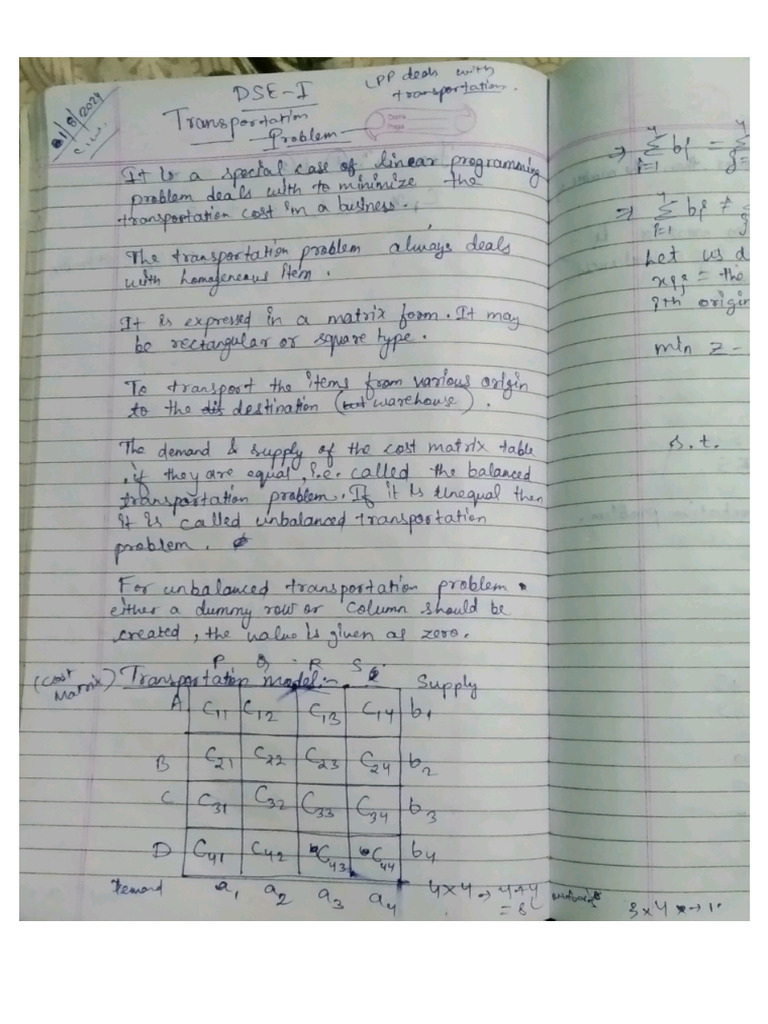 DSE-I
LPP deals with
transportation.
01/8/2024
C.W.
Transportation
Problem
It is a special case of linear programming
problem deals with to minimize the
transportation cost in a business.
The transportation problem always deals
with homogeneous item.
It is expressed in a matrix form. It may
be rectangular or square type.
To transport the items from various origin
to the destination (warehouse).
The demand & supply of the cost matrix table
, if they are equal, i.e. called the balanced
transportation problem. If it is unequal then
it is called unbalanced transportation
problem.
For unbalanced transportation problem
either a dummy row or column should be
created, the value is given as zero.
(Cost Matrix) Transportation model:-
P Q R S Supply
A C11 C12 C13 C14 b1
B C21 C22 C23 C24 b2
C C31 C32 C33 C34 b3
D C41 C42 C43 C44 b4
Demand a1 a2 a3 a4
4×4 → 4+4
= 8
⇒ 4 Σ i=1 bi = 4 Σ
⇒ 4 Σ i=1 bi ≠
Let us d
xij = the
ith origin
min Z =
s.t.
3×4 →